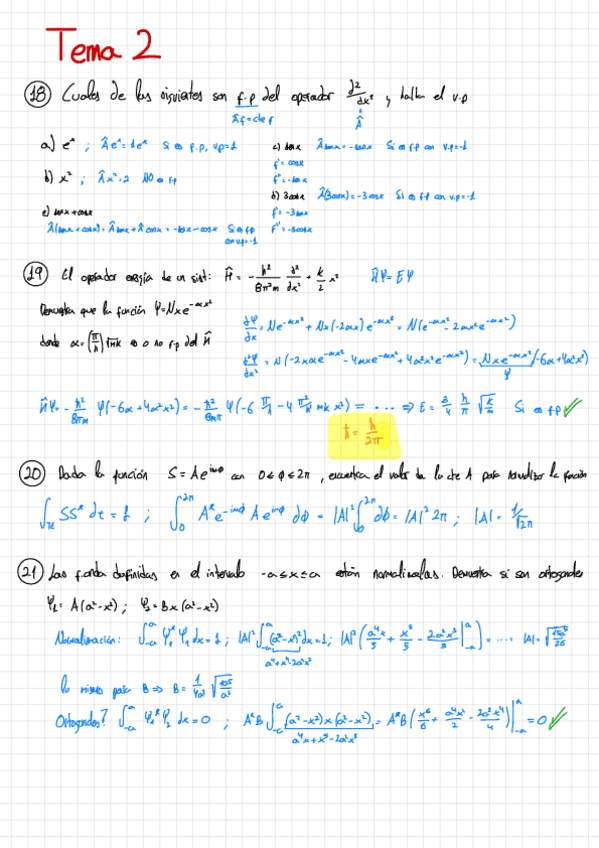 Tema 2
18 Cuales de las siguientes son f.p del operador d²/dx² y hallar el v.p
Âf=cte f
Â
a) eˣ ; Âeˣ=1eˣ Si es f.p, v.p=1
c) senx Âsenx=-senx Si es f.p con v.p=-1
f'=cosx
f''=-senx
b) x² ; Âx²=2 NO es f.p
d) 3cosx Â(3cosx)=-3cosx Si es f.p con v.p=-1
f'=-3senx
f''=-3cosx
e) senx+cosx
Â(senx+cosx)=Âsenx+Âcosx=-senx-cosx Si es f.p
con v.p=-1
19 El operador energía de un sist: Ĥ=-h²/8π²m d²/dx²+k/2 x² ĤΨ=EΨ
Demuestra que la función Ψ=Nxe^-αx²
donde α=(π/h)√mk es o no f.p del Ĥ
dΨ/dx=Ne^-αx²+Nx(-2αx)e^-αx²=N(e^-αx²-2αx²e^-αx²)
d²Ψ/dx²=N(-2xαe^-αx²-4αxe^-αx²+4α²x³e^-αx²)=Nxe^-αx²(-6α+4α²x²)
Ψ
ĤΨ=-h²/8π²m Ψ(-6α+4α²x²)= ⇒ E=3/4 h/π √k/m Si es f.p ✓
ħ=h/2π
20 Dada la función S=Ae^imϕ con 0≤ϕ≤2π, encuentra el valor de la cte A para normalizar la función
SS* dτ=1 ; ∫₀^2π A*e^-imϕ A e^imϕ dϕ=|A|²∫₀^2π dϕ=|A|² 2π ; |A|=1/√2π
21 Las fonda definidas en el intervalo -a≤x≤a están normalizadas. Demuestra si son ortogonales
Ψ₁=A(a²-x²) ; Ψ₂=Bx(a²-x²)
Normalización: ∫₋ₐ^a Ψ₁*Ψ₁dx=1 ; |A|²∫₋ₐ^a (a²-x²)²dx=1 ;
a⁴+x⁴-2a²x²
lo mismo para B⇒B=
Ortogonales? ∫₋ₐ^a Ψ₁*Ψ₂ dx=0 ; A*B∫₋ₐ^a (a²-x²)x(a²-x²)=A*B(x⁶/6+a⁴x²/2-2a²x⁴/4)|₋ₐ^a=0 ✓
a⁴x+x⁵-2a²x³